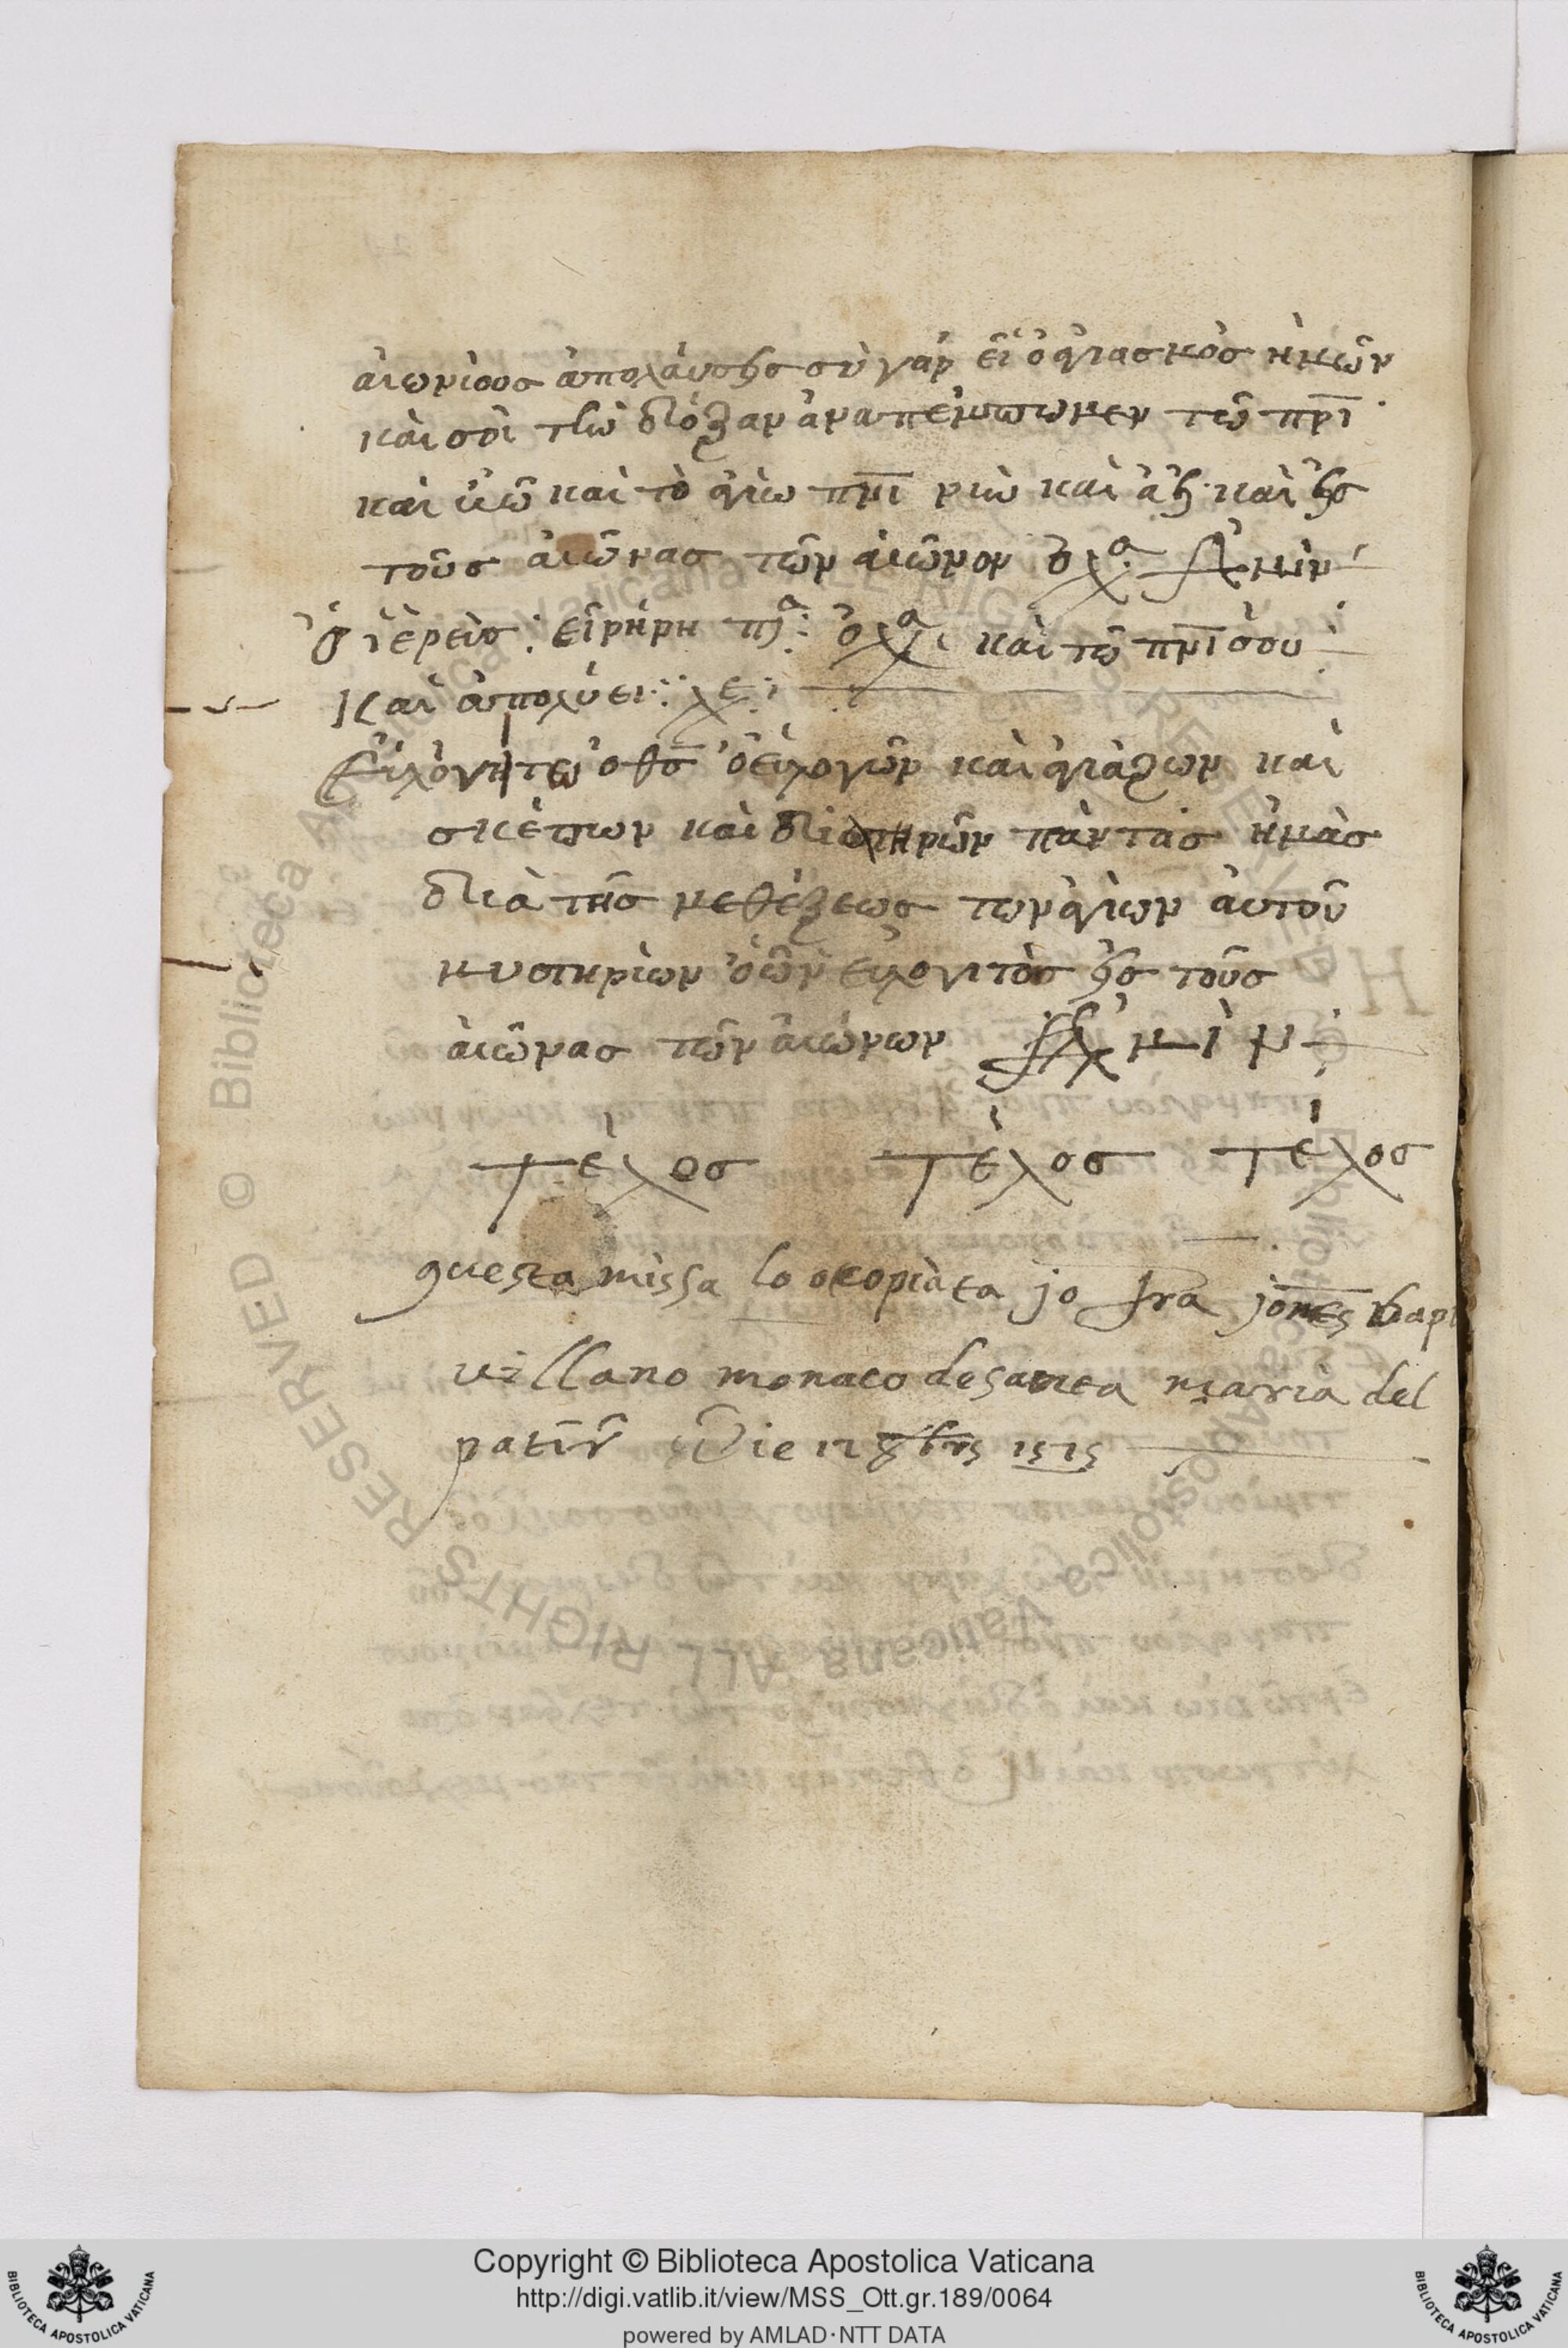 αἰωνίους ἀπολάυσεις σὺ γάρ εἶ ὁ ἁγιασμὸς ἡμῶν
καὶ σοὶ τὴν δόξαν ἀναπέμπωμεν τῶ πρὶ
καὶ υἱῶ καὶ τὸ ἁγίω πνι νῦν καὶ ἀεὶ καὶ εἰς
τοῦς ἀιῶνας τῶν ἀιῶνον ὁ λα Ἀμὴν
ὁ ἱερεὺς: εἰρήνη πᾶ: ὁ λα: καὶ τῶ πνι σου
Και ἀπολύει: λε:
Ἐυλόγητω ὁ θς ὁ ἐυλογῶν καὶ ἁγιάζων καὶ
σκέπων καὶ διατηρῶν πάντας ἡμὰς
διὰ τῆς μεθέξεως των ἁγίων ἀυτοῦ
μυστηρίων ὁ ὢν ευλογιτὸς εἰς τοῦς
ἀιῶνας τῶν ἀιώνων Ἀμὶν
τέλος τέλος τέλος
questa missa lo ocopiata jo fra joñes bapt
villano monaco de santa maria del
patir Die 12 8bris 1575
Copyright © Biblioteca Apostolica Vaticana
http://digi.vatlib.it/view/MSS_Ott.gr.189/0064
powered by AMLAD·NTT DATA